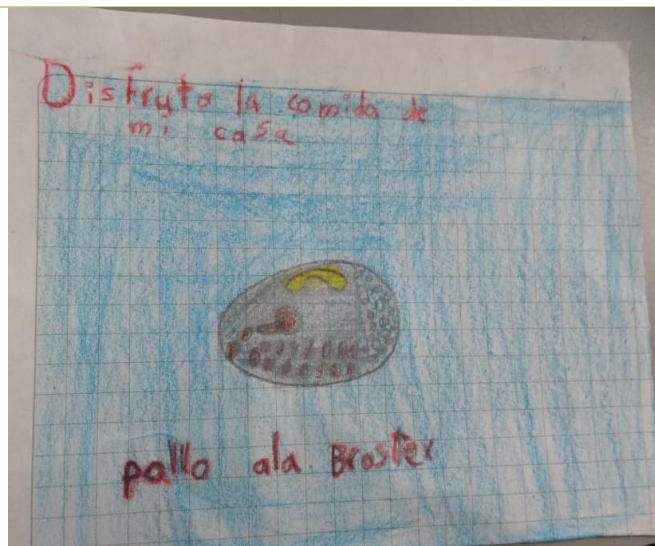 Disfruto la comida de
mi casa
pallo ala Broster